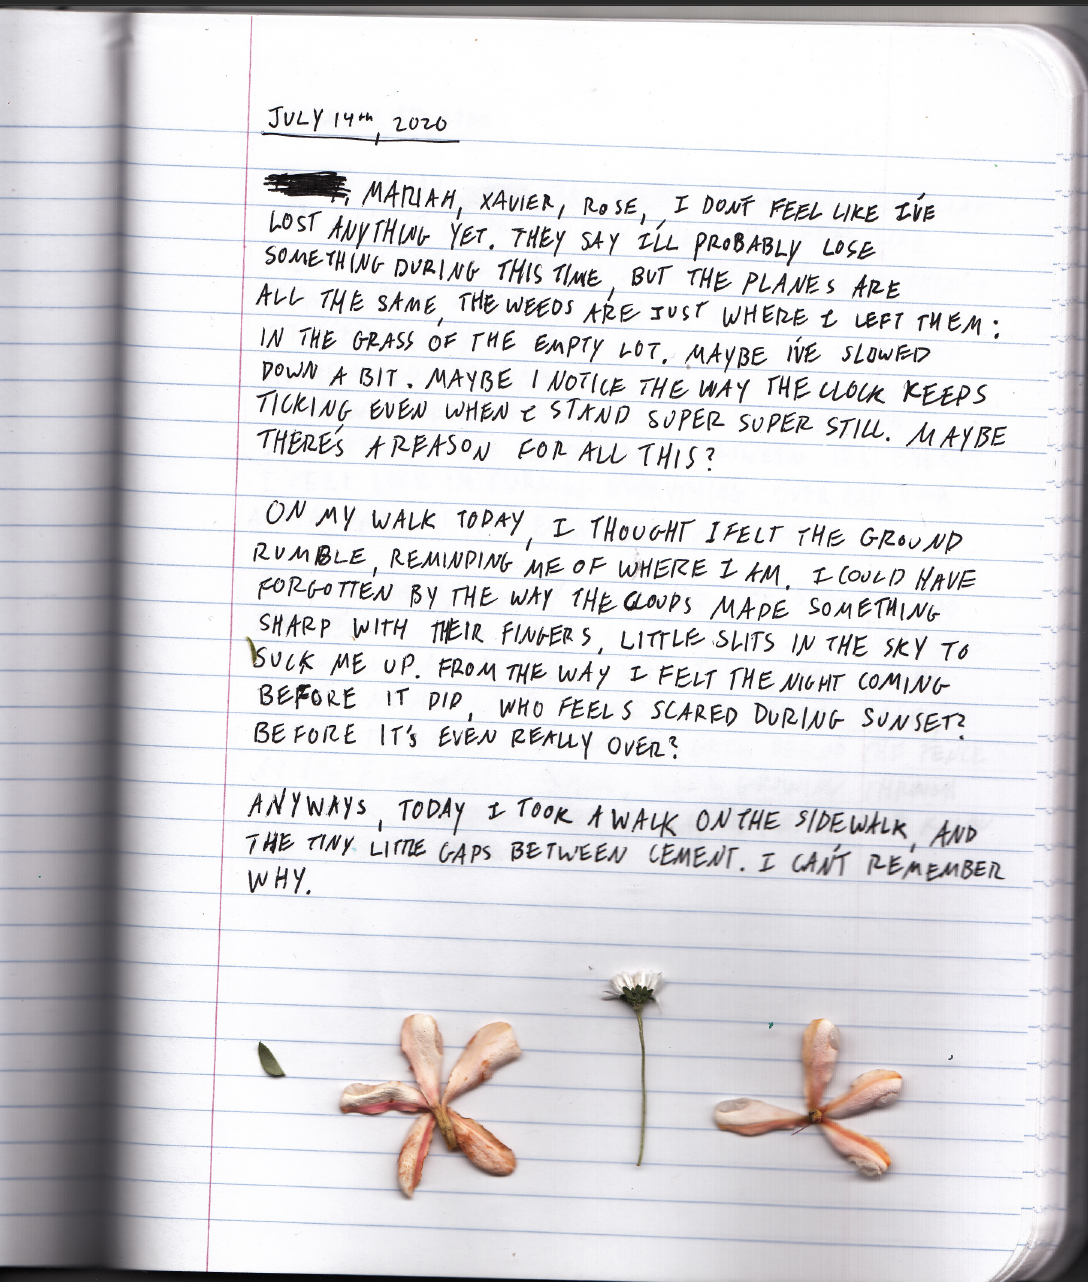 JULY 14th, 2020
, MARIAH, XAVIER, ROSE, I DON'T FEEL LIKE I'VE
LOST ANYTHING YET. THEY SAY I'LL PROBABLY LOSE
SOMETHING DURING THIS TIME, BUT THE PLANES ARE
ALL THE SAME, THE WEEDS ARE JUST WHERE I LEFT THEM:
IN THE GRASS OF THE EMPTY LOT. MAYBE I'VE SLOWED
DOWN A BIT. MAYBE I NOTICE THE WAY THE CLOCK KEEPS
TICKING EVEN WHEN I STAND SUPER SUPER STILL. MAYBE
THERE'S A REASON FOR ALL THIS?
ON MY WALK TODAY, I THOUGHT I FELT THE GROUND
RUMBLE, REMINDING ME OF WHERE I AM. I COULD HAVE
FORGOTTEN BY THE WAY THE CLOUDS MADE SOMETHING
SHARP WITH THEIR FINGERS, LITTLE SLITS IN THE SKY TO
SUCK ME UP. FROM THE WAY I FELT THE NIGHT COMING
BEFORE IT DID, WHO FEELS SCARED DURING SUNSET?
BEFORE IT'S EVEN REALLY OVER?
ANYWAYS, TODAY I TOOK A WALK ON THE SIDEWALK, AND
THE TINY LITTLE GAPS BETWEEN CEMENT. I CAN'T REMEMBER
WHY.